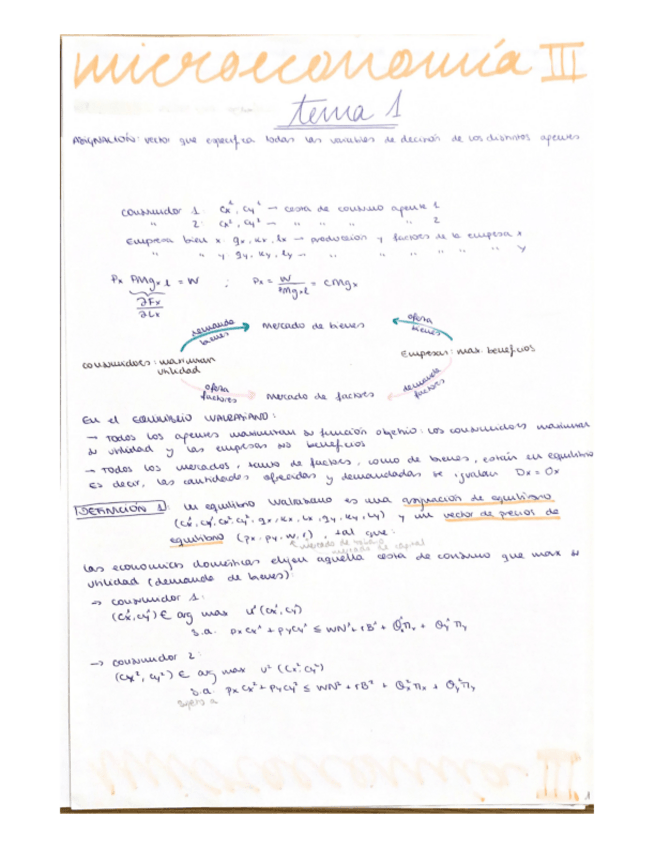 microeconomía III
tema 1
ASIGNACIÓN: vector que especifica todas las variables de decisión de los distintos agentes
consumidor 1: Cx¹, Cy¹ → cesta de consumo agente 1
" 2: Cx², Cy² → " " " " 2
Empresa bien x: qx, Kx, Lx → producción y factores de la empresa x
" " y: qy, Ky, Ly → " " " " " y
Px PMgxL = W ; Px = W / PMgxL = CMgx
∂Fx / ∂Lx
demanda bienes
mercado de bienes
oferta bienes
consumidores: maximizan utilidad
Empresas: max. beneficios
oferta factores
mercado de factores
demanda factores
En el EQUILIBRIO WALRASIANO:
→ Todos los agentes maximizan su función objetivo: los consumidores maximizan
su utilidad y las empresas sus beneficios
→ Todos los mercados, tanto de factores, como de bienes, están en equilibrio
es decir, las cantidades ofrecidas y demandadas se igualan Dx = Ox
DEFINICIÓN 1: un equilibrio walrasiano es una asignación de equilibrio
(Cx¹, Cy¹, Cx², Cy², qx, Kx, Lx, qy, Ky, Ly) y un vector de precios de
equilibrio (px, py, w, r), tal que:
mercado de trabajo
mercado de capital
las economías domésticas eligen aquella cesta de consumo que max su
utilidad (demanda de bienes):
→ consumidor 1:
(Cx¹, Cy¹) ∈ arg max U¹(Cx¹, Cy¹)
s.a. PxCx¹ + PyCy¹ ≤ WN¹ + rB¹ + Θx¹Πx + Θy¹Πy
→ consumidor 2:
(Cx², Cy²) ∈ arg max U²(Cx², Cy²)
s.a. PxCx² + PyCy² ≤ WN² + rB² + Θx²Πx + Θy²Πy
sujeto a
1